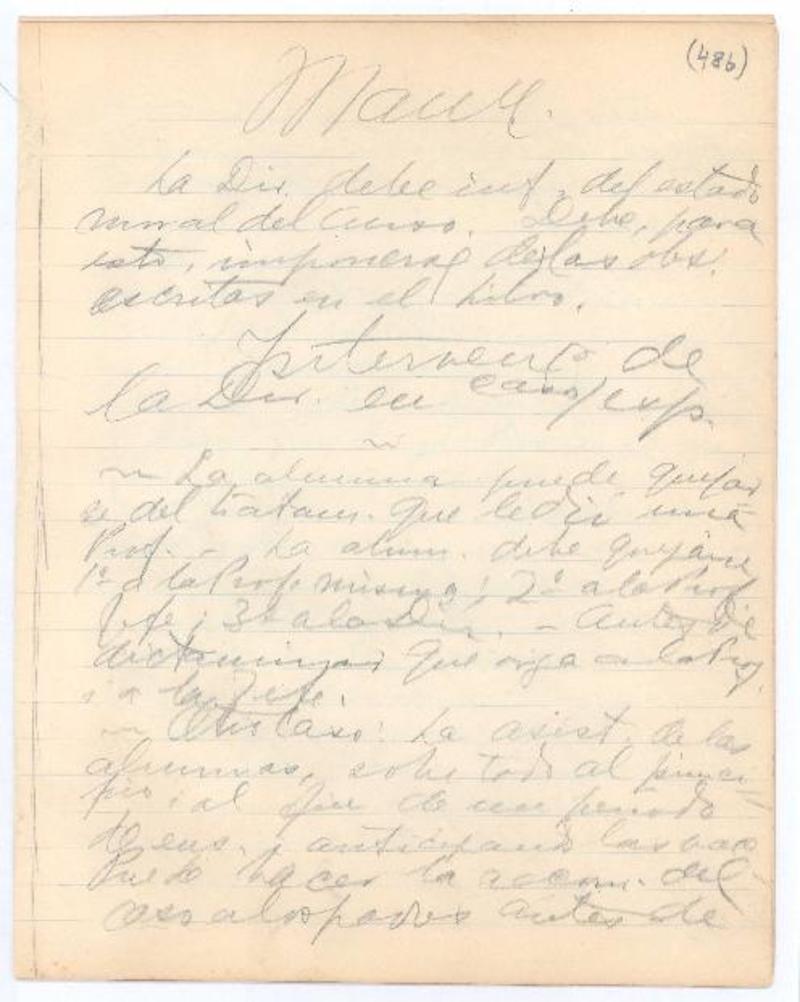 (486)
La Dir. debe inf. del estado
moral del curso. Debe, para
esto, imponerse de las obs.
escritas en el Libro.
Intervenc. de
la Dir. en caso/exp.
~ La alumna puede quejar
se del tratam. que le dé una
Prof. - La alum. debe quejarse
1º a la Prof. misma; 2º a la Prof
Jefe; 3º a la Dir. - Antes de
dictaminar que oiga a la Prof.
i a la Jefe.
~ Otro caso: La asist. de las
alumnas, sobre todo al princi-
pio i al fin de un período
de ens. i anticipando las vac.
Puede hacer la recom. del
caso a los padres antes de